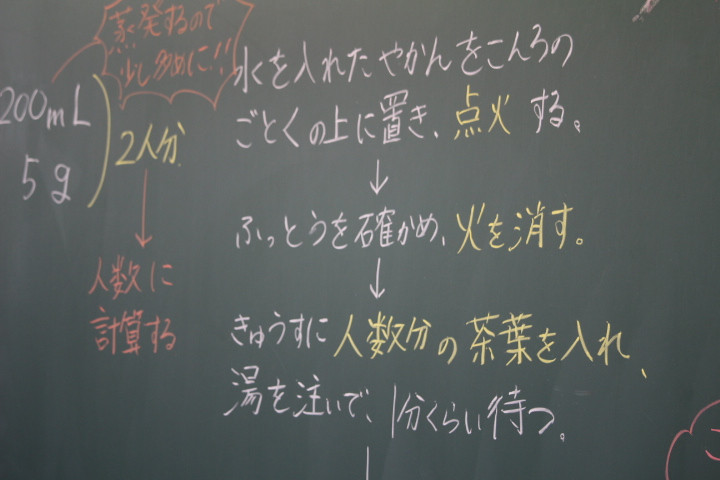 蒸発するので
少し多めに!!
200mL
5g
2人分
人数に
計算する
水を入れたやかんをこんろの
ごとくの上に置き、点火する。
↓
ふっとうを確かめ、火を消す。
↓
きゅうすに人数分の茶葉を入れ、
湯を注いで、1分くらい待つ。